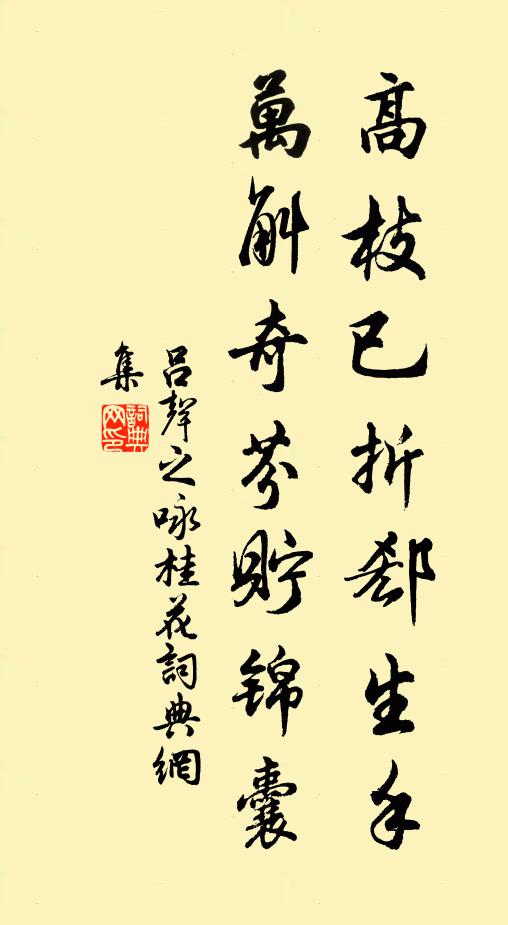 高枝已折郄生手
萬斛奇芬貯錦囊
呂聲之咏桂花詞典網
集
詞典网印